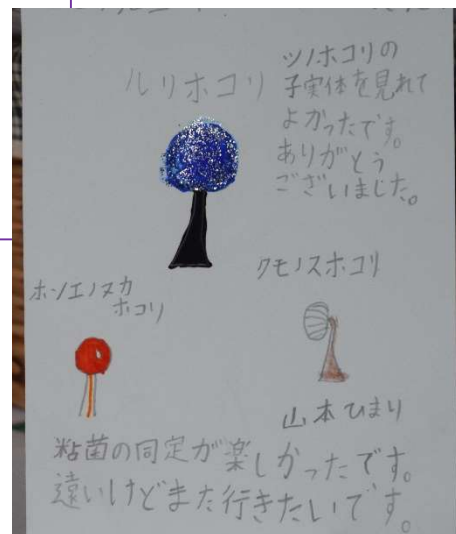 ルリホコリ
ツノホコリの
子実体を見れて
よかったです。
ありがとう
ございました。
ホソエノヌカ
ホコリ
クモノスホコリ
山本ひまり
粘菌の同定が楽しかったです。
遠いけどまた行きたいです。